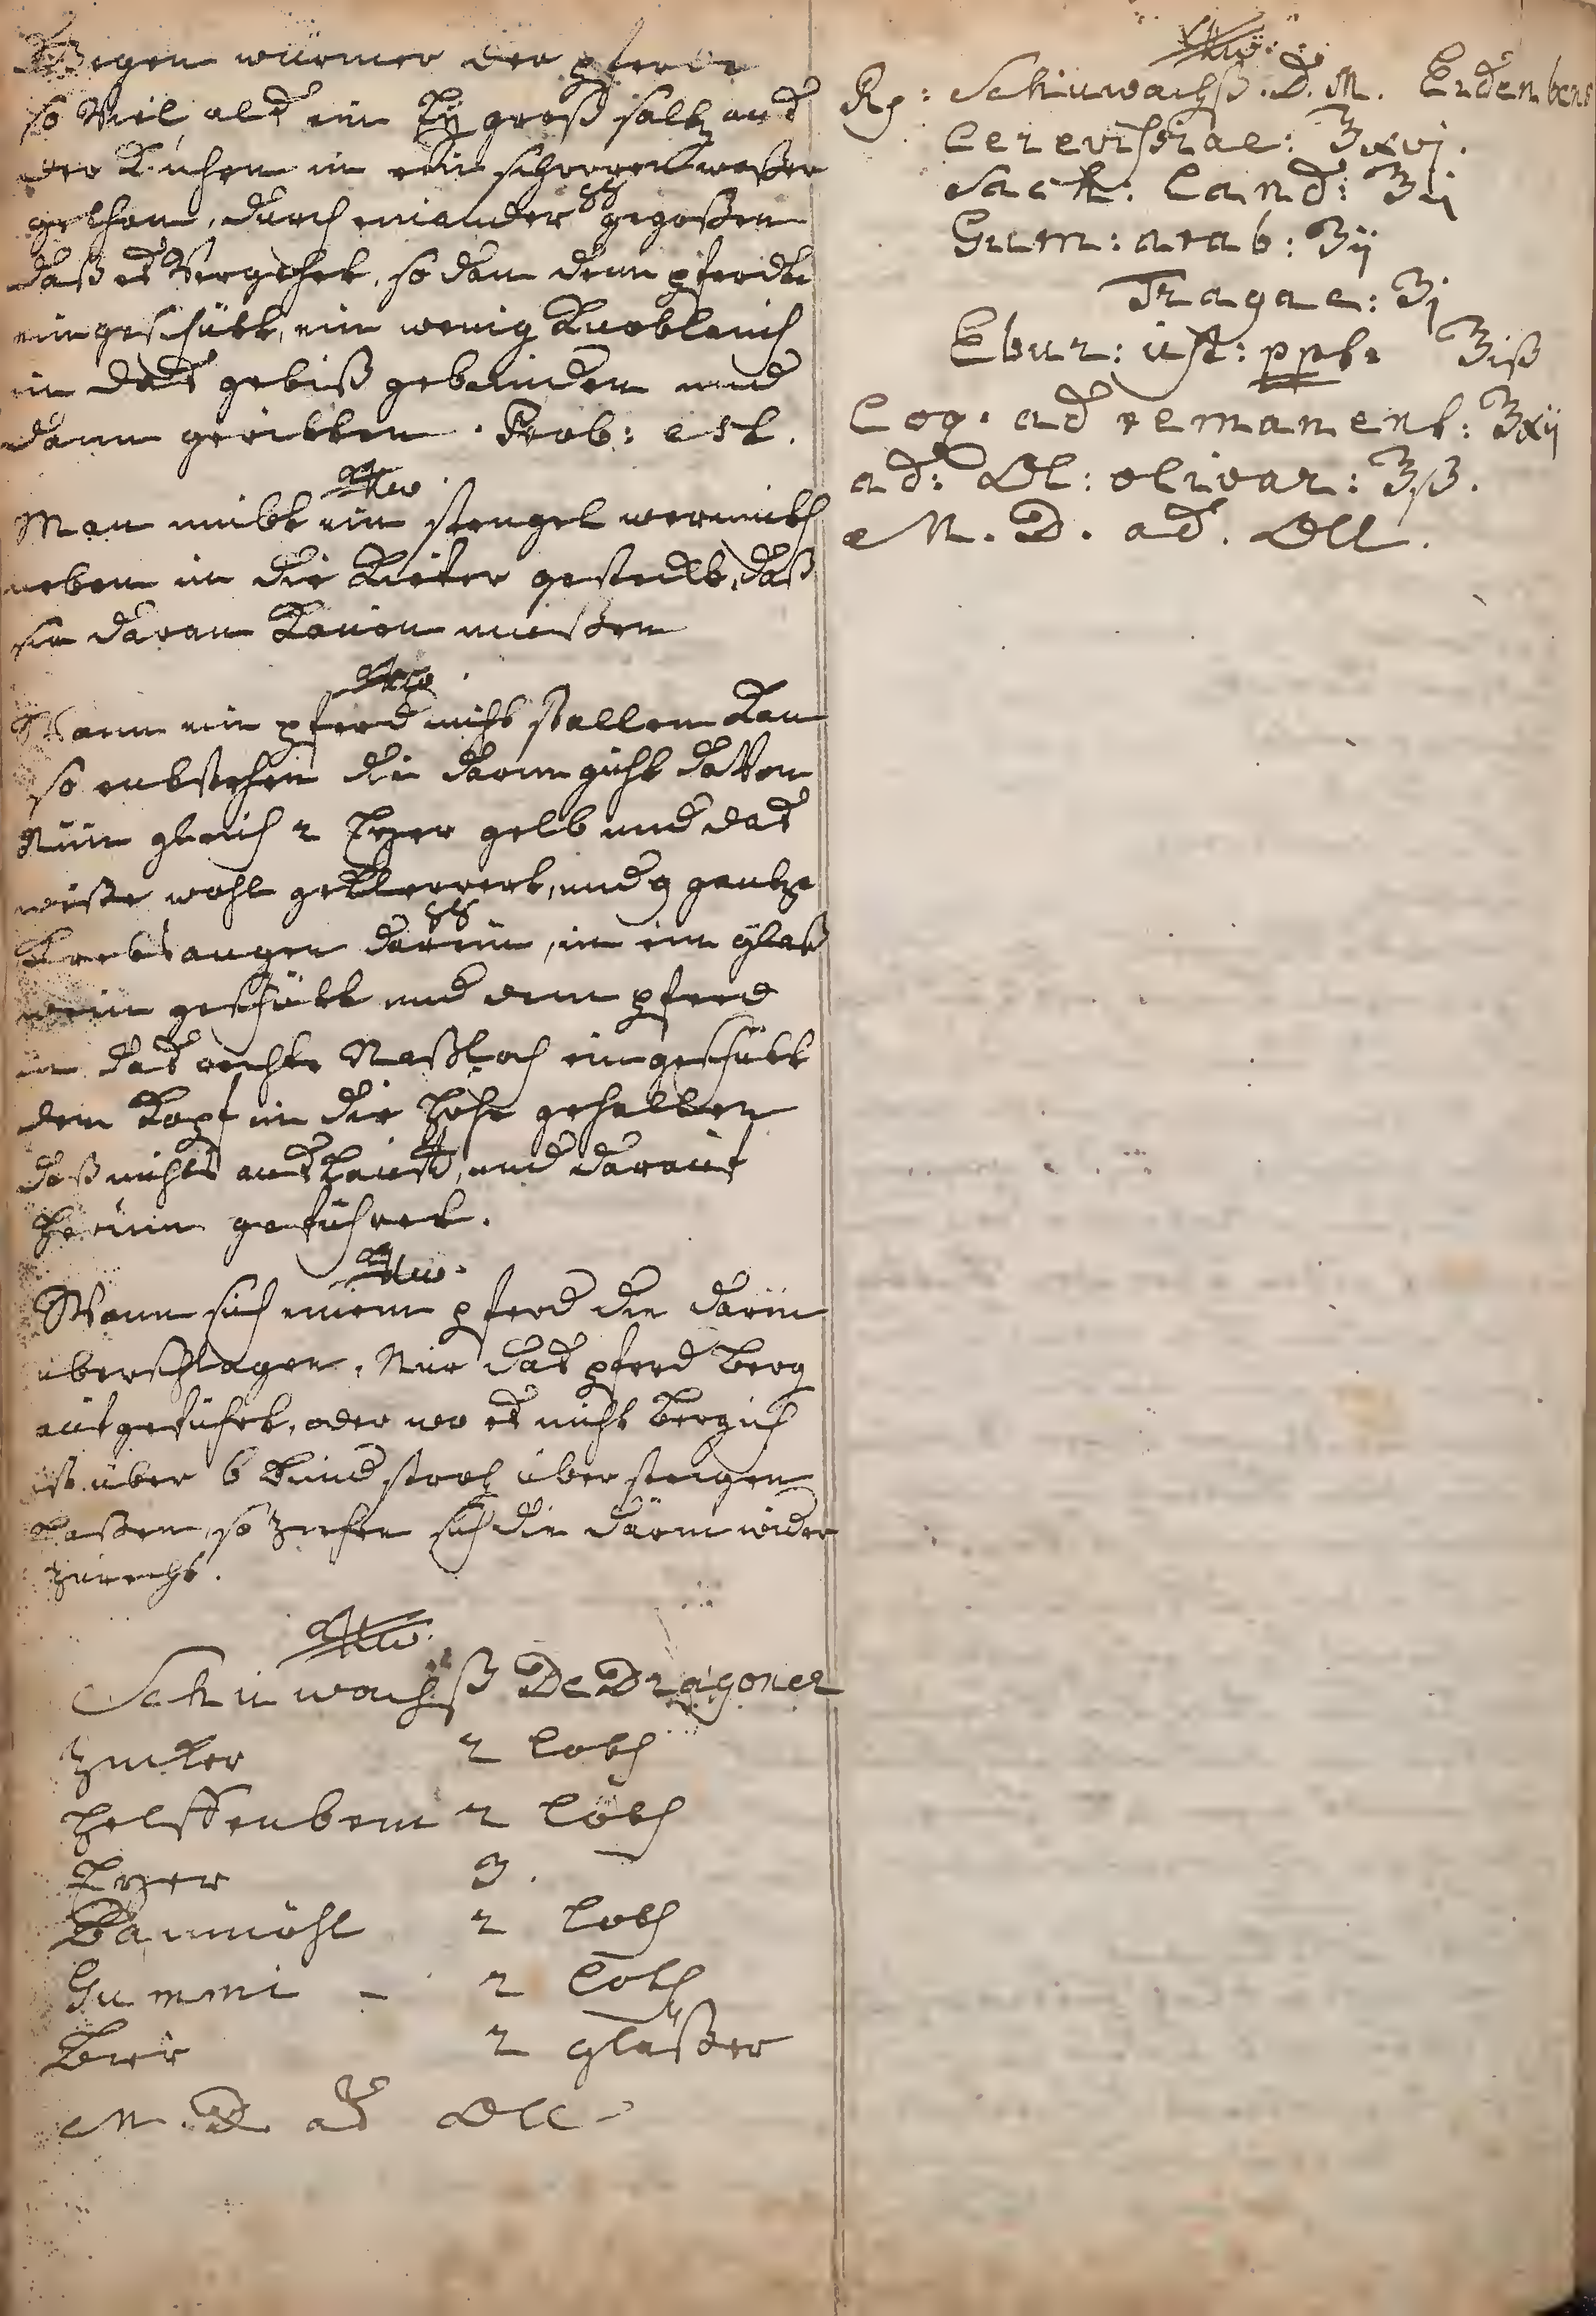 Wegen würmer der pferde
so Viel als ein Ey groß saltz aus
der Kuchen in ein schoppen waßer
gethan, durch einander gegoßen
daß es Vergehet, so dan dem pferdt
eingeschütt, ein wenig Knoblauch
in das gebiß gebunden und
dann geritten. Prob: est.
Man nimbt ein stengel wermuth
neben in die Kiefer gesteckt, daß
sie daran Kauen müßen
Wann ein pferd nicht stallen Kan
so entstehen die darm gicht davon
Nim gleich 2 Eyer gelb und das
weiße wohl gekleppert, und 9 gantze
Krebsaugen darein, in ein glaß
wein geschütt und dem pferd
in das rechte Naßloch eingeschütt
den Kopf in die Höhe gehalten
daß nichts aus Lauft, und darauf
herum geführet.
Wann sich einem pferd die därm
überschlagen, Nur das pferd Berg
auf geführt, oder wo es nicht Bergich
ist über 6 Bund stroh über steigen
Laßen, so ziehen sich die därm wider
zurecht.
Schuwachß De Dragoner
Zucker 2 Loth
Helffenbein 2 Loth
Eyer 3.
Baumöhl 2 Loth
Gummi - 2 Loth
Bier 2 gläßer
M. D. ad Oll
Rp: Schuwachß. D. M. Erdenbens
Cerevisiae: ℥xvj.
Sach: Cand: ℥ij
Gum: arab: ℥ij
Tragac: ℥j
Ebur: ust: ppt: ℥iß
Coq. ad remanent: ℥xij
ad: Ol: olivar: ℥ß.
M. D. ad. Oll.